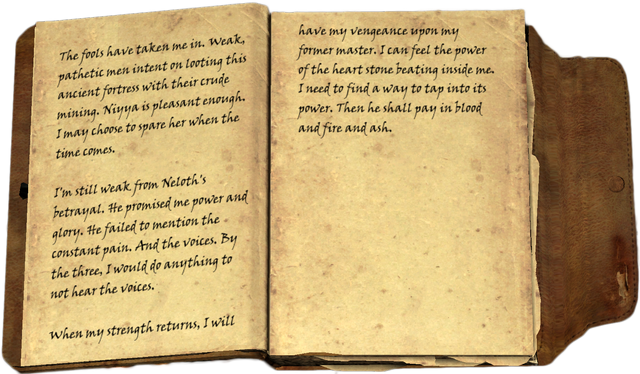 The fools have taken me in. Weak,
pathetic men intent on looting this
ancient fortress with their crude
mining. Niyya is pleasant enough.
I may choose to spare her when the
time comes.
I'm still weak from Neloth's
betrayal. He promised me power and
glory. He failed to mention the
constant pain. And the voices. By
the three, I would do anything to
not hear the voices.
When my strength returns, I will
have my vengeance upon my
former master. I can feel the power
of the heart stone beating inside me.
I need to find a way to tap into its
power. Then he shall pay in blood
and fire and ash.